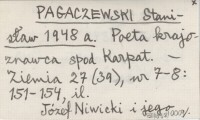 PAGACZEWSKI Stani-
sław 1948 a. Poeta krajo-
znawca spod Karpat. –
Ziemia 27 (39), nr 7-8:
151-154, il.
Józef Niwicki i jego